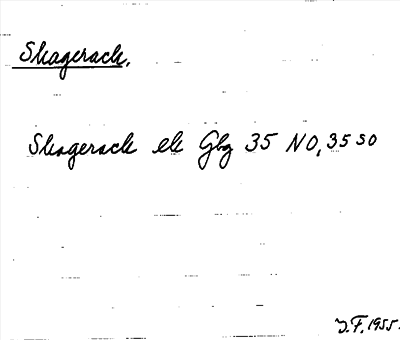 Skagerack.
Skagerack ek Gbg 35 NO, 35 SO
J.F. 1955.